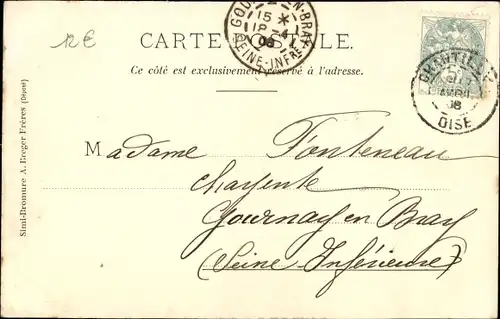 12 €
GOURNAY-EN-BRAY
15 *
SEINE-INFRE
CARTE POSTALE.
Ce côté est exclusivement réservé à l'adresse.
CHANTILLY
OISE
Simi-Bromure A. Breger Frères (Dépôt)
Madame Fonteneau
Charpente
Gournay en Bray
(Seine Inférieure)